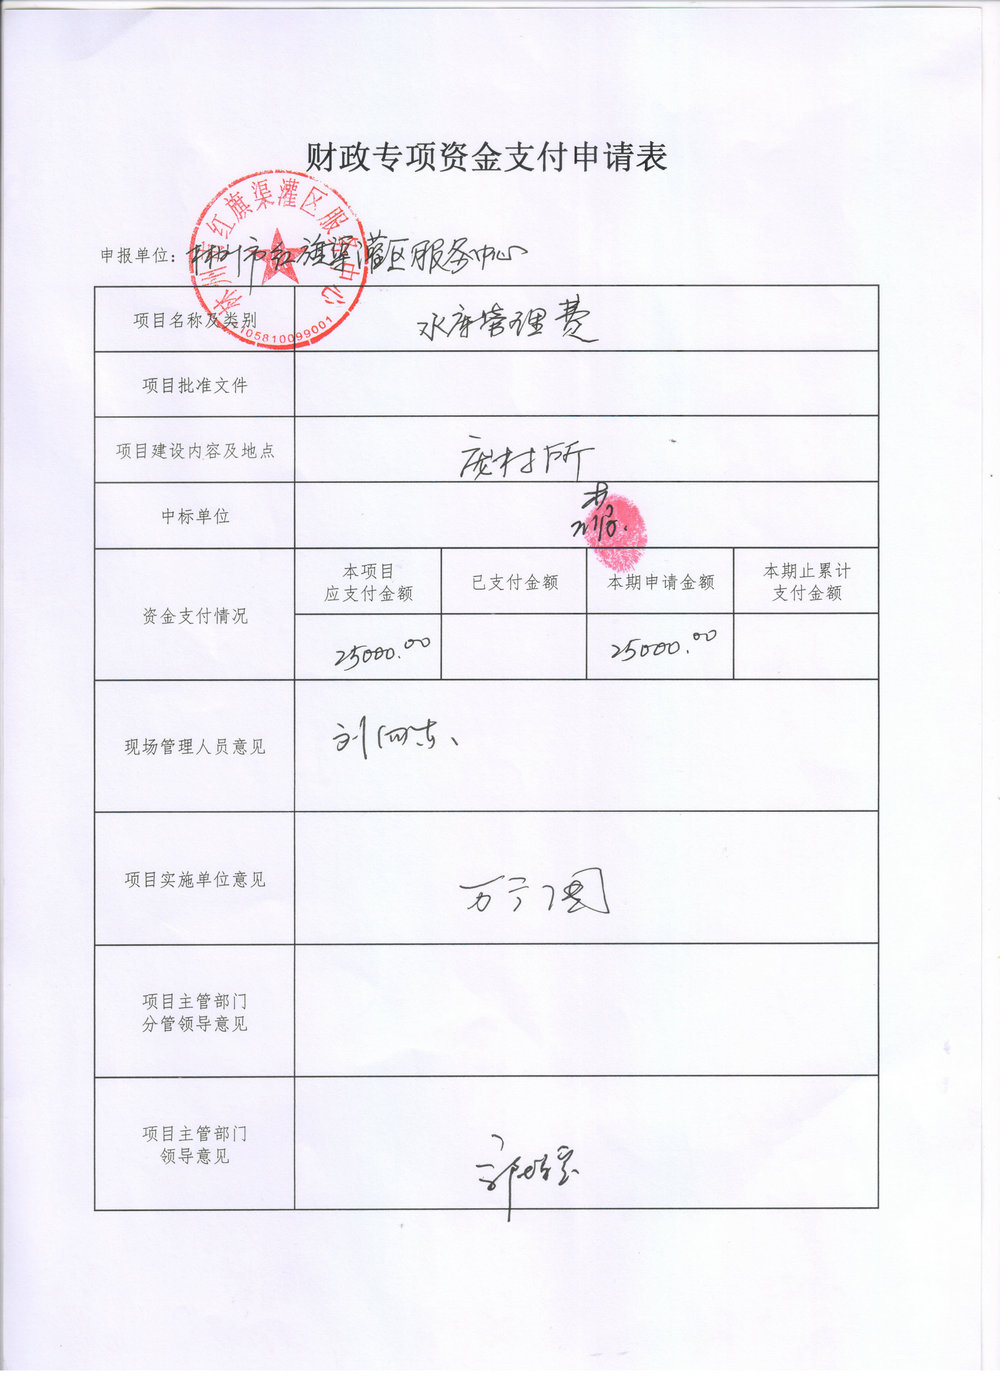 财政专项资金支付申请表
林州市红旗渠灌区服务中心
105810099001
申报单位：林州市红旗渠灌区服务中心
项目名称及类别 水库管理费
项目批准文件
项目建设内容及地点 庞村所
中标单位
资金支付情况
本项目
应支付金额
已支付金额
本期申请金额
本期止累计
支付金额
25000.00
25000.00
现场管理人员意见
项目实施单位意见
项目主管部门
分管领导意见
项目主管部门
领导意见